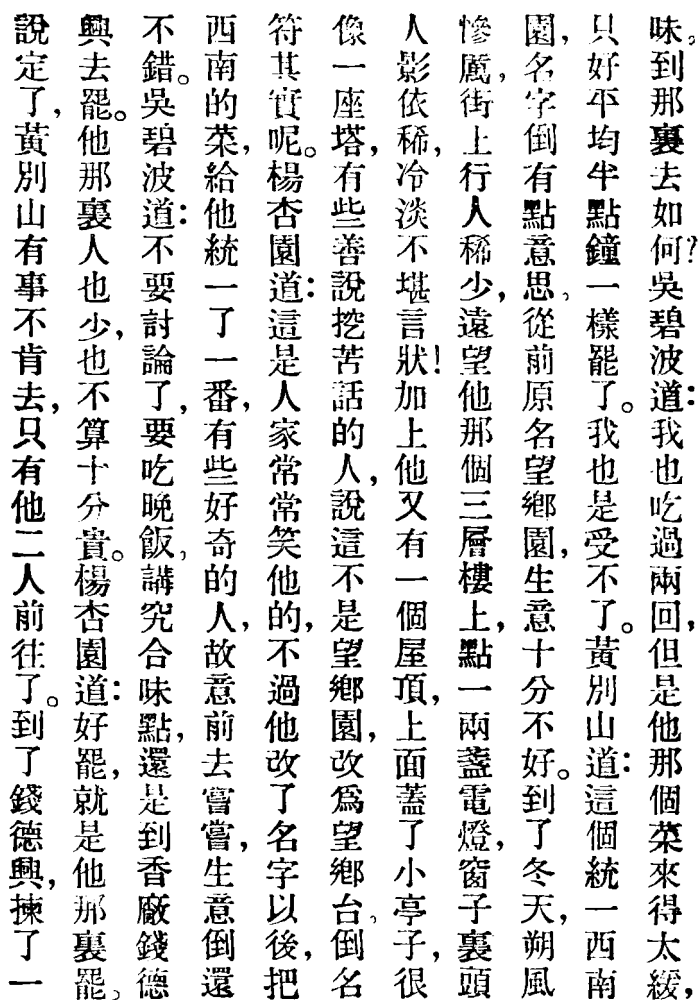 味。到那裏去如何?吳碧波道:我也吃過兩回,但是他那個菜來得太緩,
只好平均半點鐘一樣罷了。我也是受不了。黃別山道:這個統一西南
園,名字倒有點意思。從前原名望鄉園,生意十分不好。到了冬天,朔風
慘厲,街上行人稀少,遠望他那個三層樓上,點一兩盞電燈,窗子裏頭
人影依稀,冷淡不堪言狀!加上他又有一個屋頂,上面蓋了小亭子,很
像一座塔,有些善說挖苦話的人,說這不是望鄉園,改爲望鄉台。倒名
符其實呢。楊杏園道:這是人家常常笑他的,不過他改了名字以後,把
西南的菜,給他統一了一番,有些好奇的人,故意前去嘗嘗,生意倒還
不錯。吳碧波道:不要討論了,要吃晚飯。講究合味點,還是到香廠錢德
興去罷。他那裏人也少,也不算十分貴。楊杏園道:好罷,就是他那裏罷。
說定了,黃別山有事不肯去,只有他二人前往了。到了錢德興,揀了一